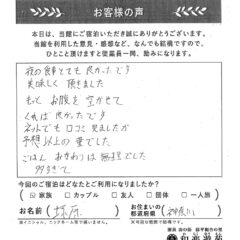 お客様の声
本日は、当館にご宿泊いただき誠にありがとうございます。
当館を利用した意見・感想など、なんでも結構ですので、
ひとこと頂けますと従業員一同、励みになります。
夜の食事とても良かったです
美味しく頂きました
もっとお腹を空かせて
くれば良かったです
ネットでも口コミ見ましたが
予想以上の量でした
ごはんおかわりは無理でした
今回のご宿泊はどなたとご利用になりましたか。
家族 カップル 友人 団体 一人旅
お名前
お住まいの都道府県 神奈川